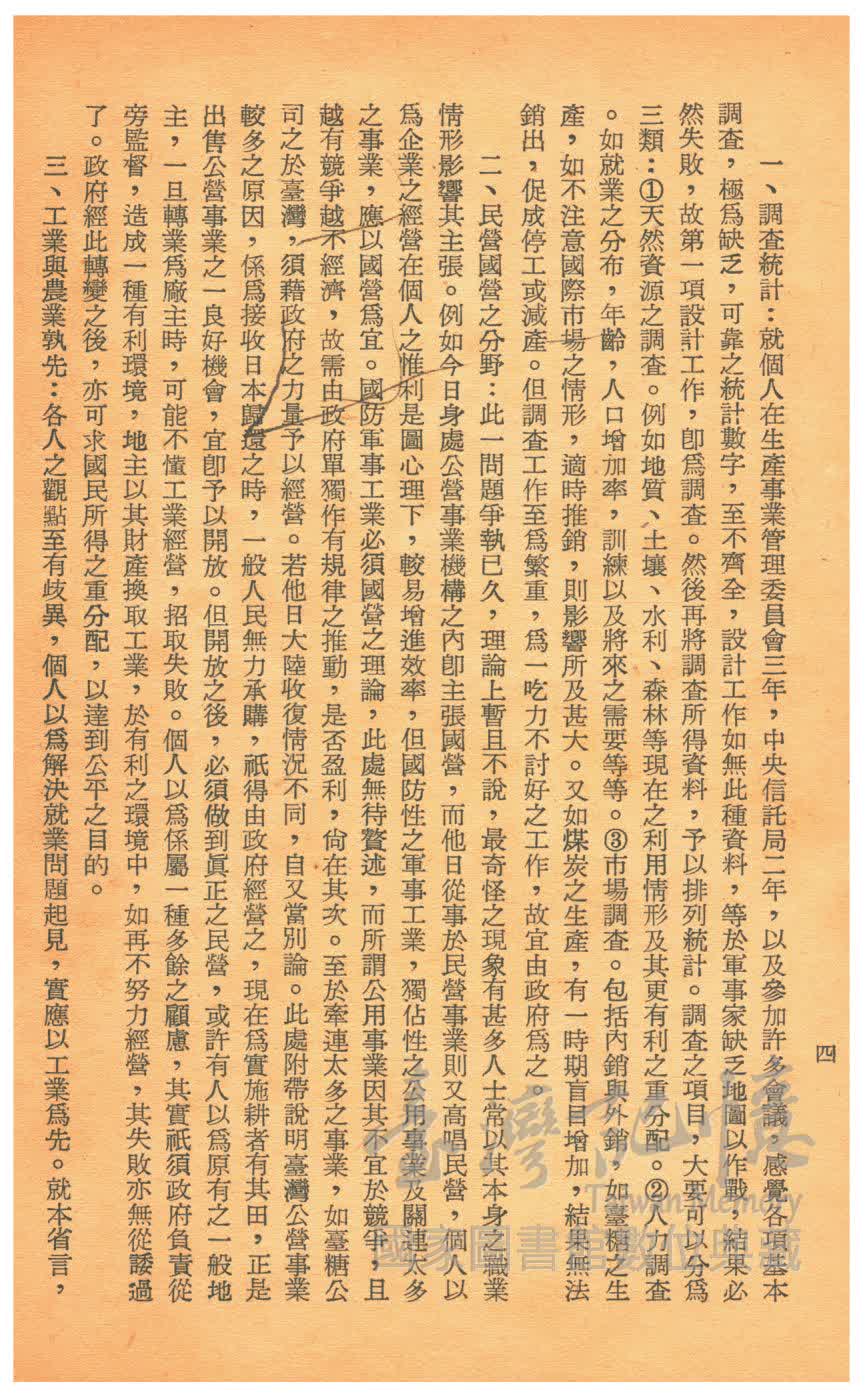 四
一、調查統計：就個人在生產事業管理委員會三年，中央信託局二年，以及參加許多會議，感覺各項基本
調查，極爲缺乏，可靠之統計數字，至不齊全，設計工作如無此種資料，等於軍事家缺乏地圖以作戰，結果必
然失敗，故第一項設計工作，卽爲調查。然後再將調查所得資料，予以排列統計。調查之項目，大要可以分爲
三類：①天然資源之調查。例如地質、土壤、水利、森林等現在之利用情形及其更有利之重分配。②人力調查
。如就業之分布，年齡，人口增加率，訓練以及將來之需要等等。③市場調查。包括內銷與外銷，如臺糖之生
產，如不注意國際市場之情形，適時推銷，則影響所及甚大。又如煤炭之生產，有一時期盲目增加，結果無法
銷出，促成停工或減產。但調查工作至爲繁重，爲一吃力不討好之工作，故宜由政府爲之。
二、民營國營之分野：此一問題爭執已久，理論上暫且不說，最奇怪之現象有甚多人士常以其本身之職業
情形影響其主張。例如今日身處公營事業機構之內卽主張國營，而他日從事於民營事業則又高唱民營，個人以
爲企業之經營在個人之惟利是圖心理下，較易增進效率，但國防性之軍事工業，獨佔性之公用事業及關連太多
之事業，應以國營爲宜。國防軍事工業必須國營之理論，此處無待贅述，而所謂公用事業因其不宜於競爭，且
越有競爭越不經濟，故需由政府單獨作有規律之推動，是否盈利，尙在其次。至於牽連太多之事業，如臺糖公
司之於臺灣，須藉政府之力量予以經營。若他日大陸收復情況不同，自又當別論。此處附帶說明臺灣公營事業
較多之原因，係爲接收日本歸還之時，一般人民無力承購，祇得由政府經營之，現在爲實施耕者有其田，正是
出售公營事業之一良好機會，宜卽予以開放。但開放之後，必須做到眞正之民營，或許有人以爲原有之一般地
主，一旦轉業爲廠主時，可能不懂工業經營，招取失敗。個人以爲係屬一種多餘之顧慮，其實祇須政府負責從
旁監督，造成一種有利環境，地主以其財產換取工業，於有利之環境中，如再不努力經營，其失敗亦無從諉過
了。政府經此轉變之後，亦可求國民所得之重分配，以達到公平之目的。
三、工業與農業孰先：各人之觀點至有歧異，個人以爲解決就業問題起見，實應以工業爲先。就本省言，
臺灣記憶
Taiwan Memory
國家圖書館數位典藏